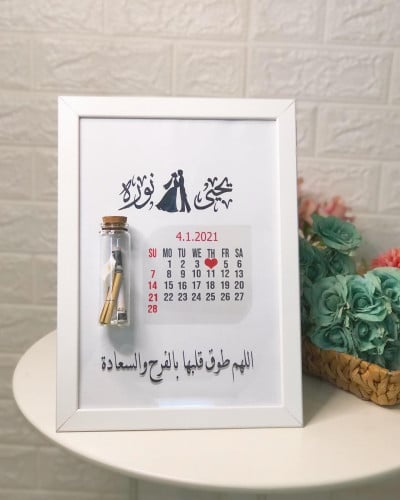 يحيى نورة
4.1.2021
SU MO TU WE TH FR SA
1 2 3 5 6
7 8 9 10 11 12 13
14 15 16 17 18 19 20
21 22 23 24 25 26 27
28
اللهم طوق قلبها بالفرح والسعادة